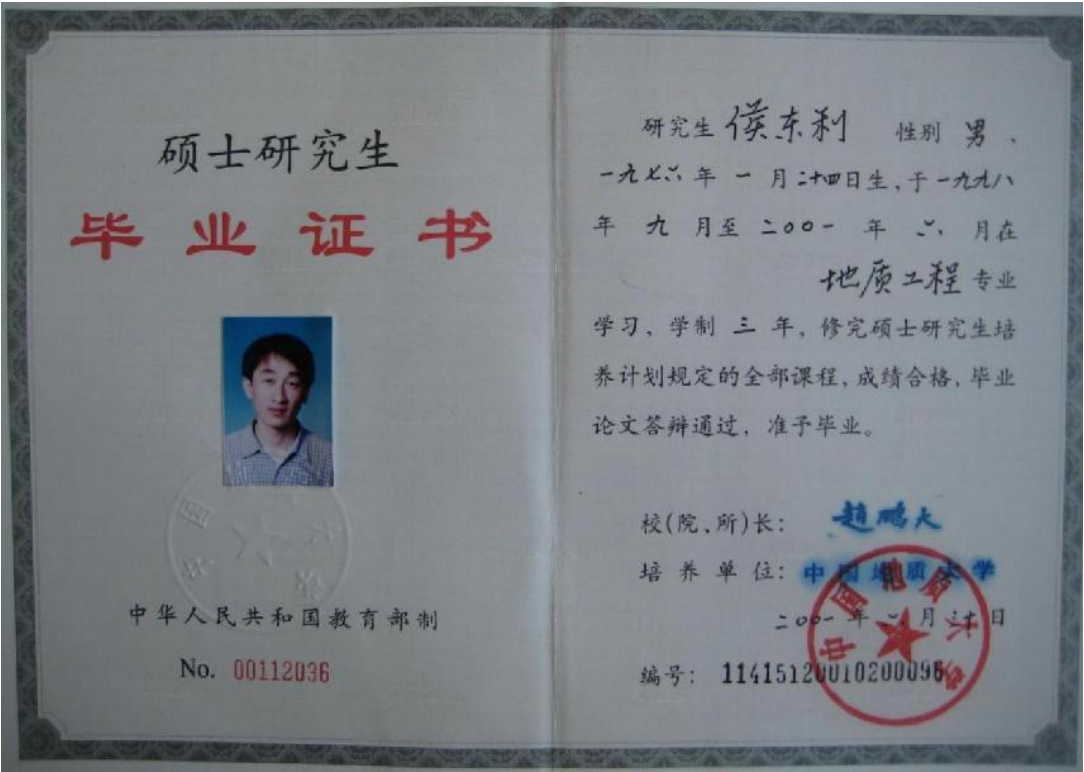 硕士研究生
毕业证书
中华人民共和国教育部制
No. 00112036
研究生 侯东利 性别 男、
一九七六年 一 月二十四日生,于一九九八
年 九 月至 二〇〇一 年 六 月在
地质工程 专业
学习、学制 三 年,修完硕士研究生培
养计划规定的全部课程,成绩合格,毕业
论文答辩通过,准予毕业。
校(院、所)长: 赵鹏大
培养单位: 中国地质大学
二〇〇一年六月 日
编号: 11415120010200096
中国地质大学